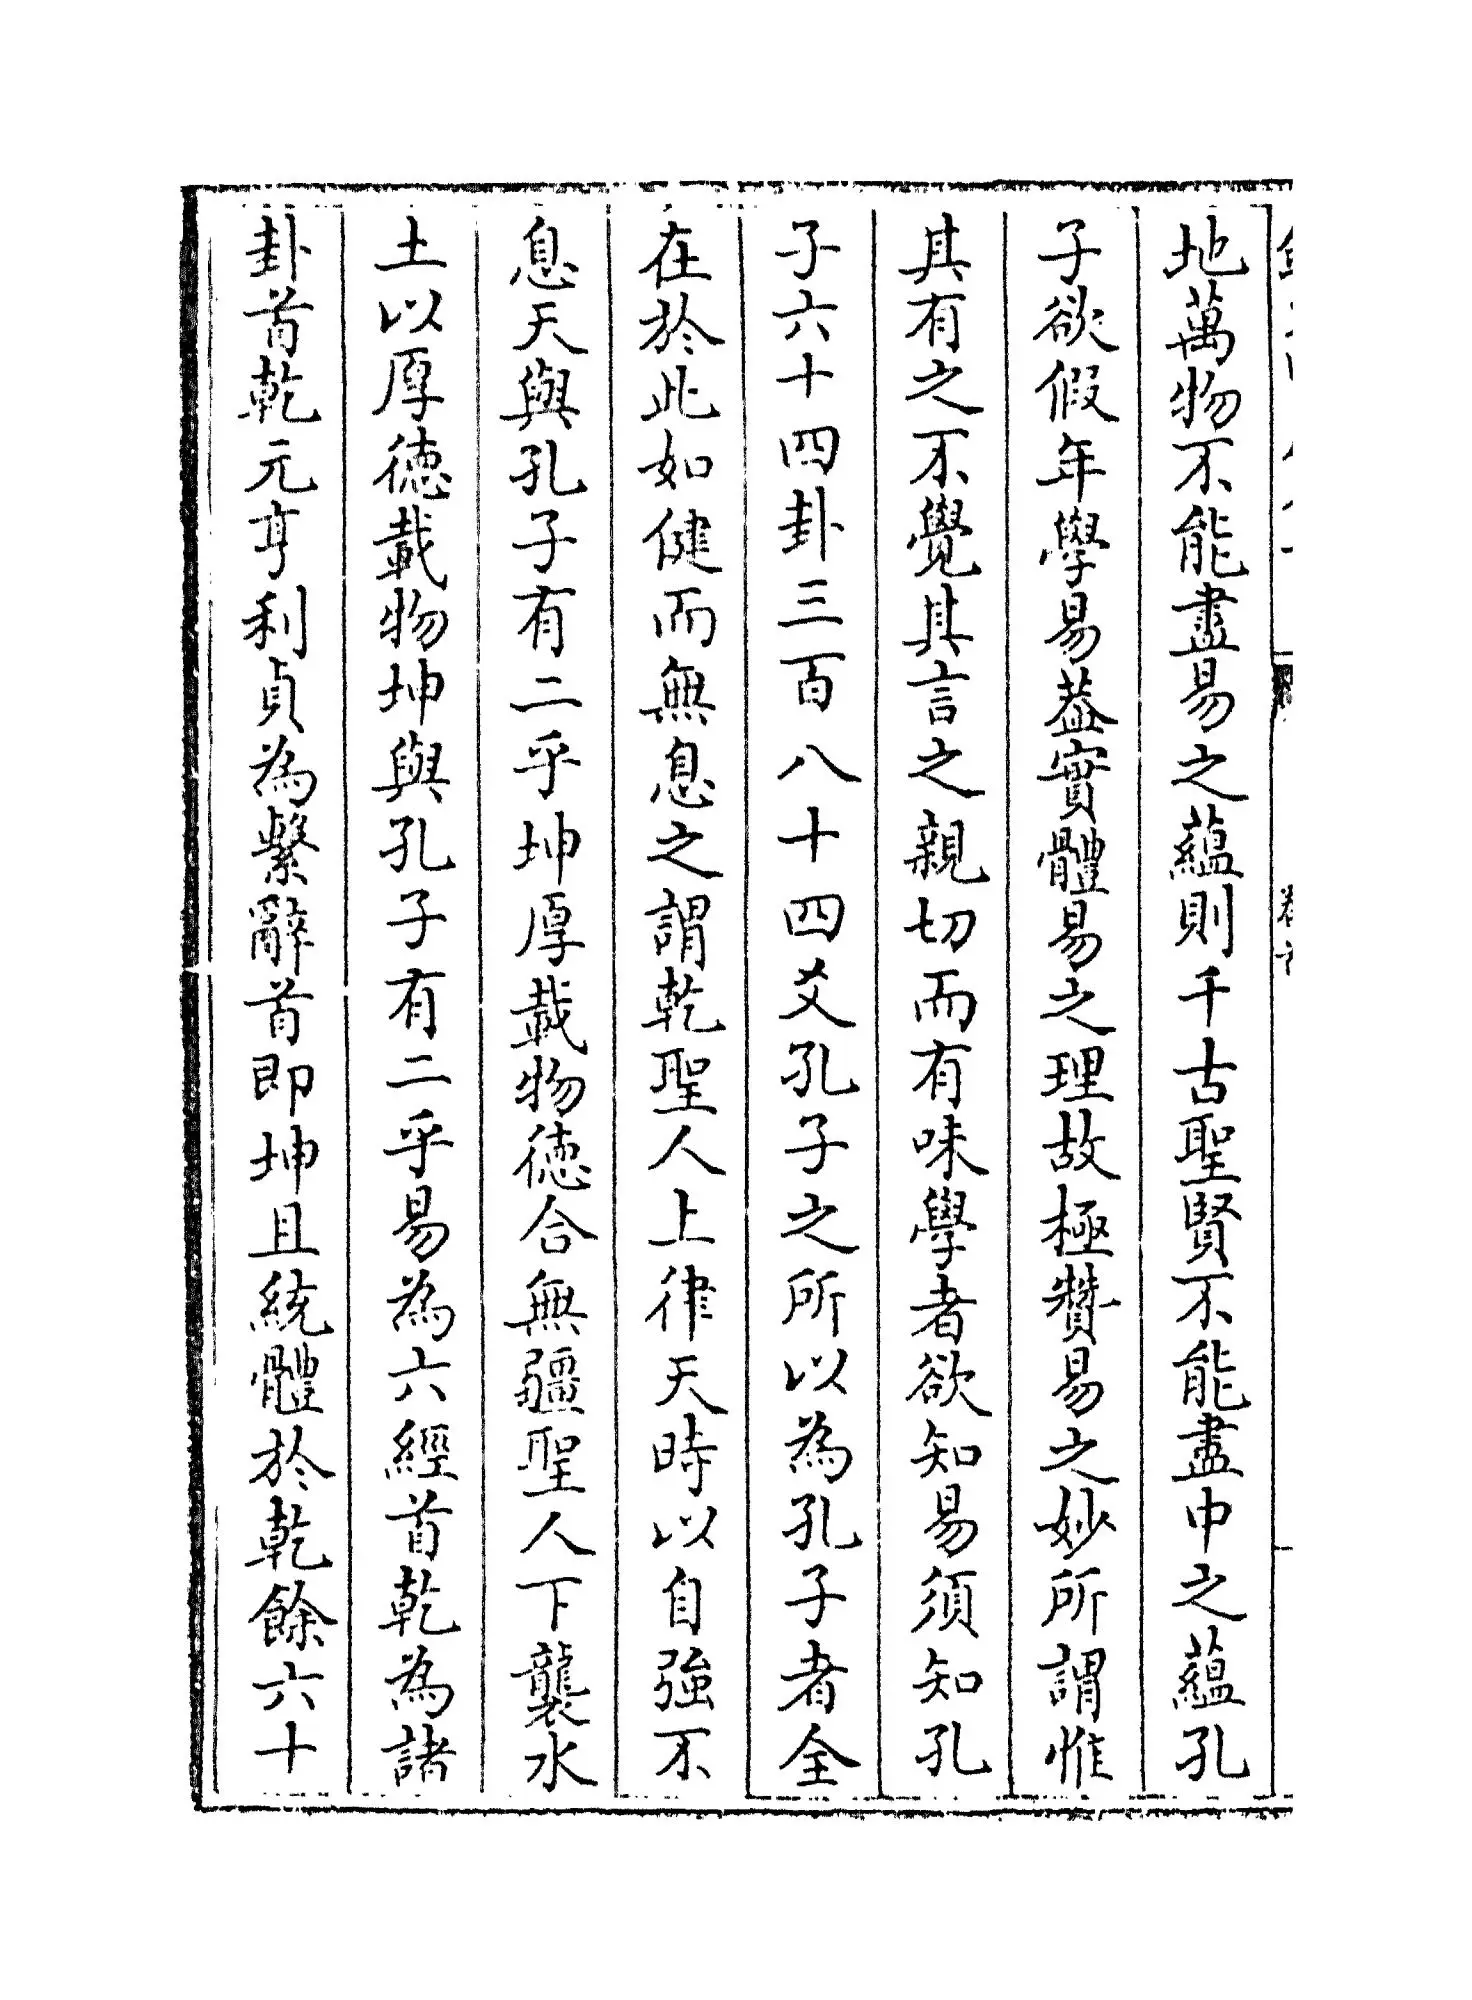 地萬物不能盡易之蘊則千古聖賢不能盡中之蘊孔
子欲假年學易葢實體易之理故極贊易之妙所謂惟
其有之不覺其言之親切而有味學者欲知易須知孔
子六十四卦三百八十四爻孔子之所以為孔子者全
在於此如健而無息之謂乾聖人上律天時以自強不
息天與孔子有二乎坤厚載物徳合無疆聖人下襲水
土以厚徳載物坤與孔子有二乎易為六經首乾為諸
卦首乾元亨利貞為繫辭首即坤且統體於乾餘六十